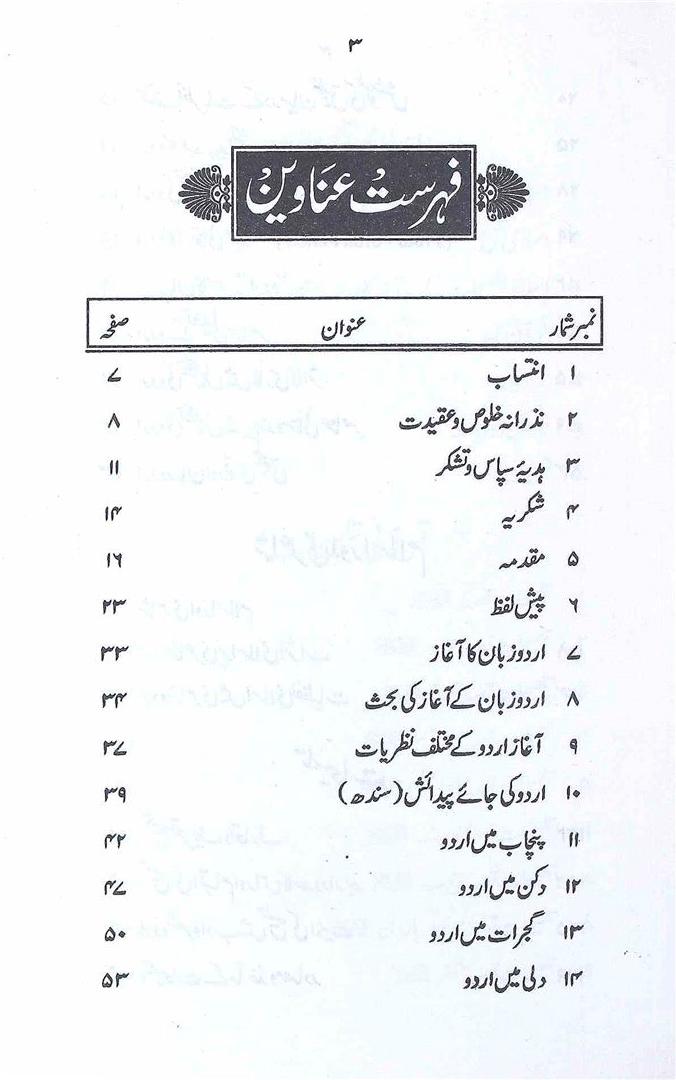 ۳
فہرست عناوین
نمبر شمار عنوان صفحہ
۱ انتساب ۷
۲ نذرانہ خلوص و عقیدت ۸
۳ ہدیۂ سپاس و تشکر ۱۱
۴ شکریہ ۱۴
۵ مقدمہ ۱۶
۶ پیش لفظ ۲۳
۷ اردو زبان کا آغاز ۳۳
۸ اردو زبان کے آغاز کی بحث ۳۴
۹ آغاز اردو کے مختلف نظریات ۳۷
۱۰ اردو کی جائے پیدائش (سندھ) ۳۹
۱۱ پنجاب میں اردو ۴۲
۱۲ دکن میں اردو ۴۷
۱۳ گجرات میں اردو ۵۰
۱۴ دلی میں اردو ۵۳